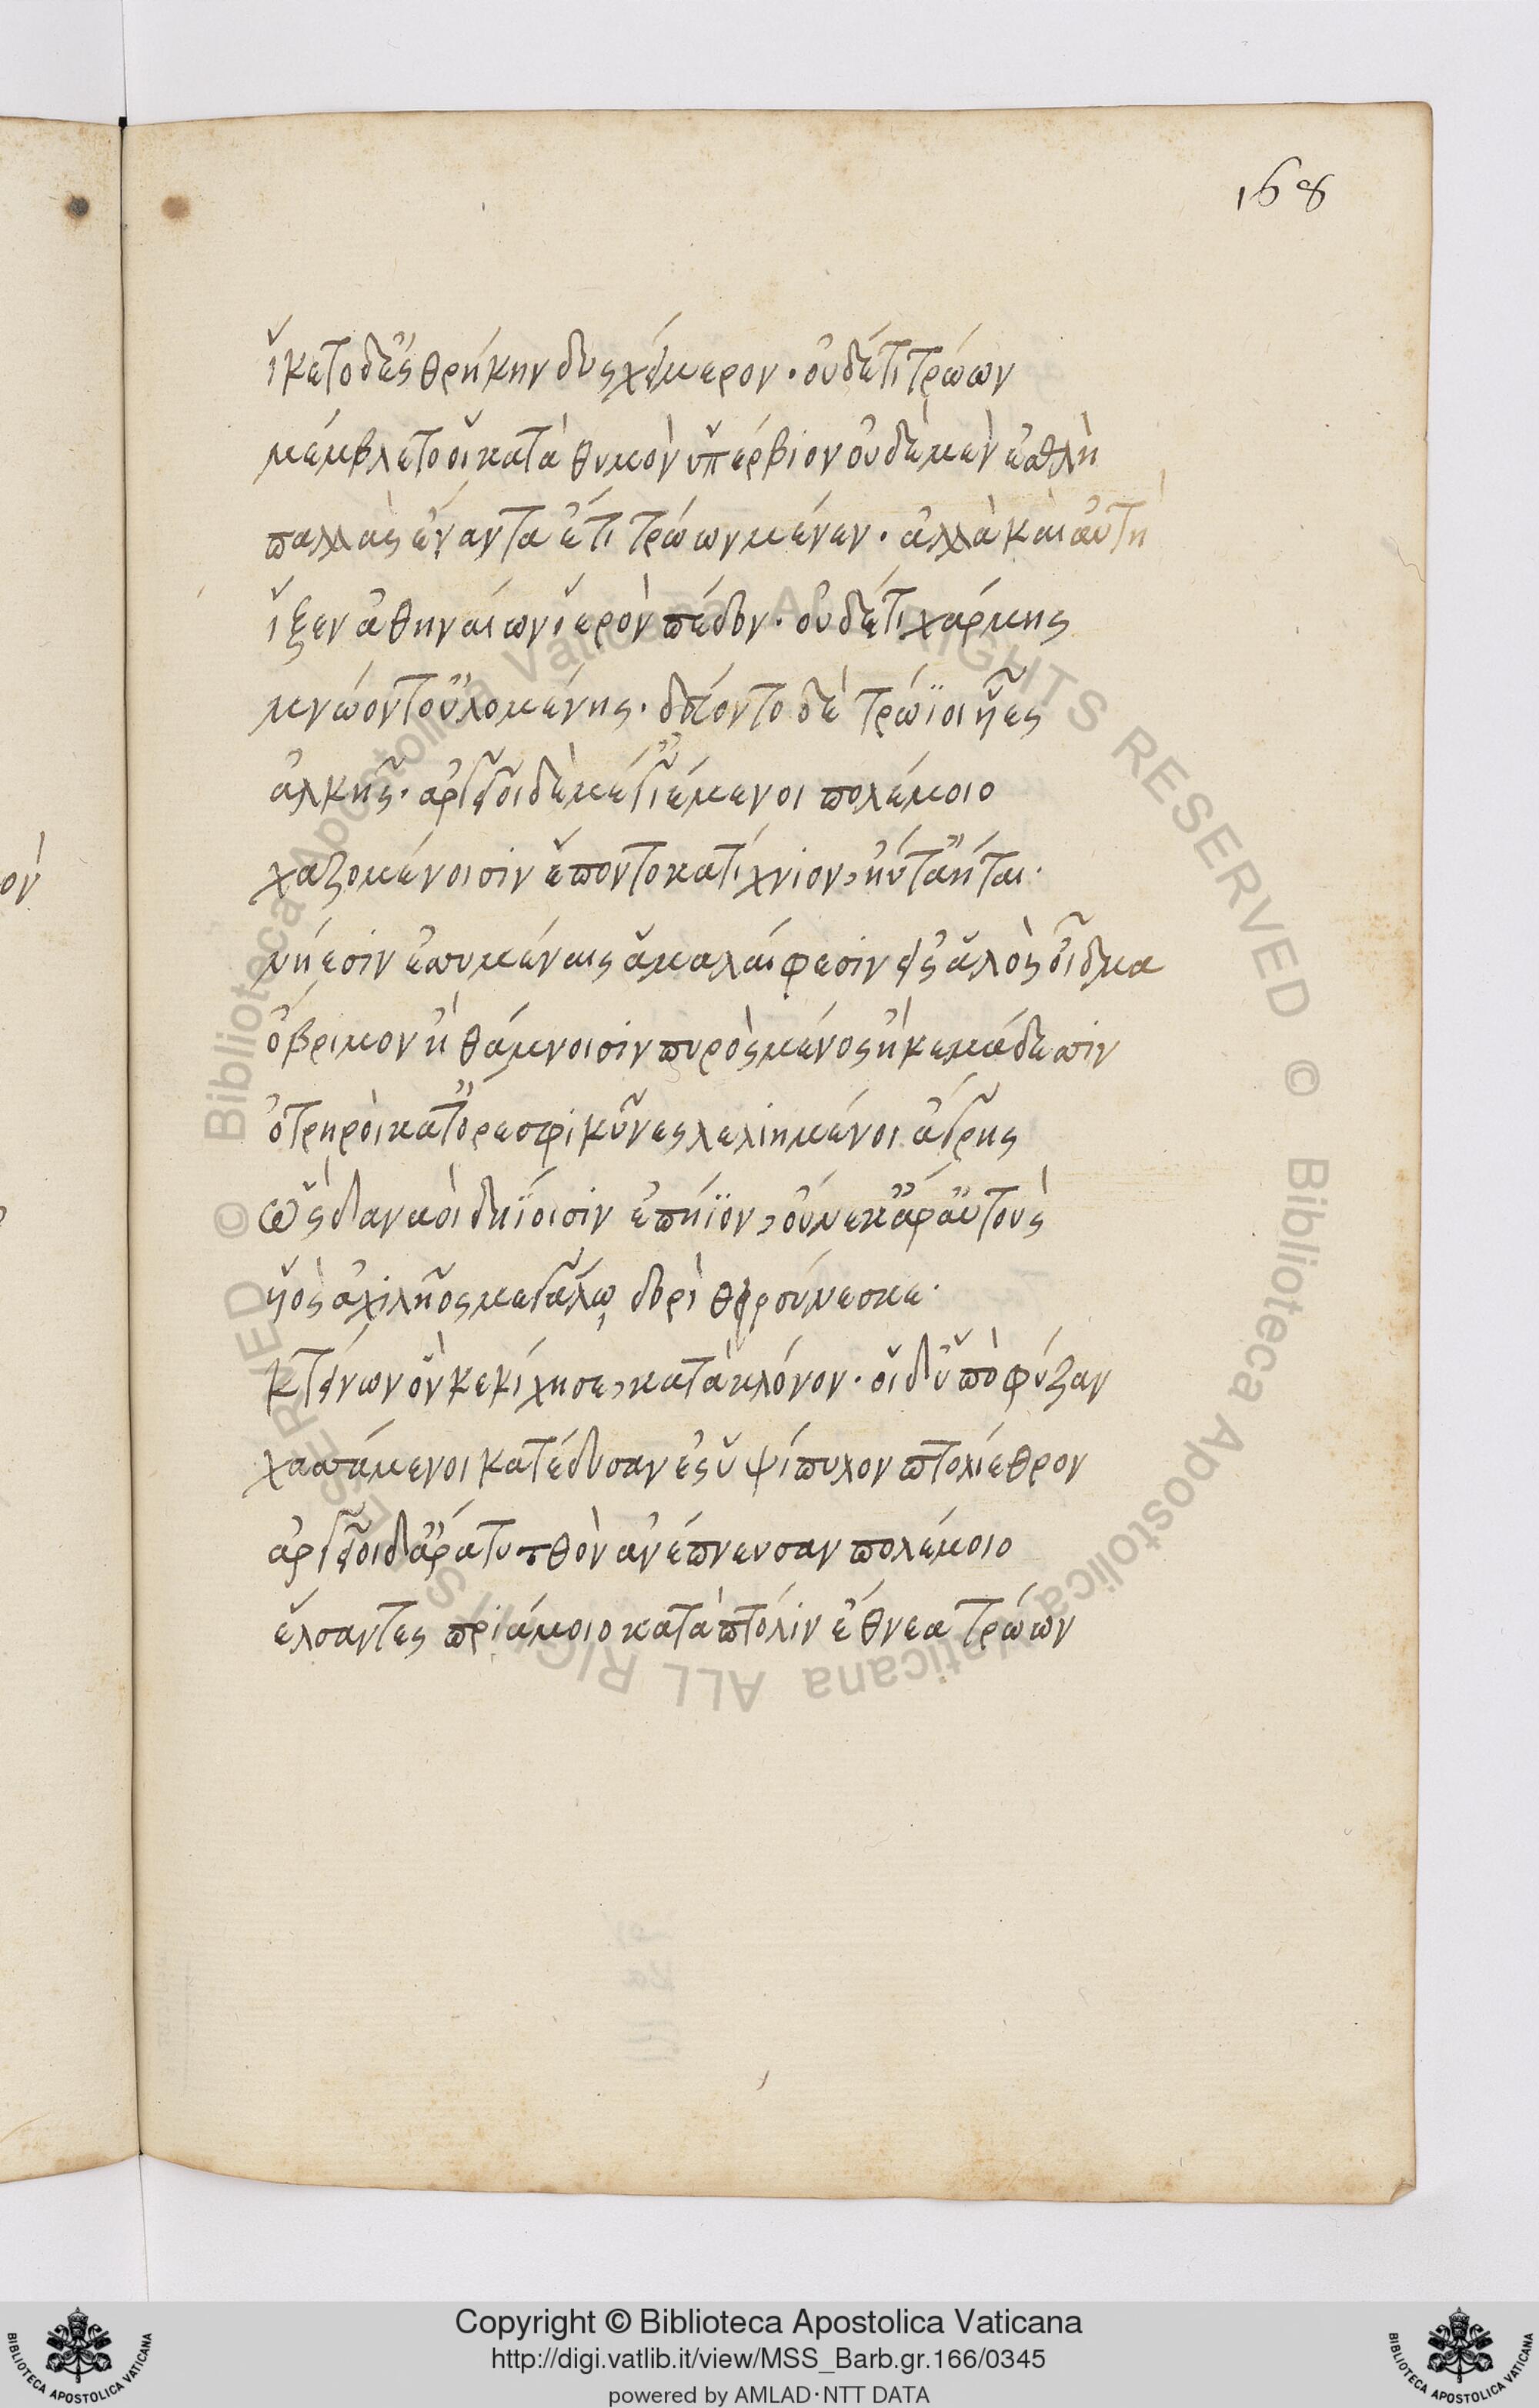 168
ἵκετο δ' ἐς θρήκην δυσχείμερον· οὐδ' ἔτι τρώων
μέμβλετό οἱ κατὰ θυμὸν ὑπέρβιον οὐδὲ μὲν ἔσθλὴ
παλλὰς ἔναντα ἔτι τρώων μένεν· ἀλλὰ καὶ αὐτὴ
ἷξεν ἀθηναίων ἱερὸν πέδον· οὐδ' ἔτι χάρμης
μνώοντ' οὐλομένης· δεύοντο δὲ τρώϊοι ἧες
ἀλκῆς· ἀργεῖοι δὲ μέγ' ἱέμενοι πολέμοιο
χαζομένοισιν ἕποντο κατ' ίχνιον, ἠΰτ' ἀῆται·
νήεσιν ἐσσυμέναις ἅμα λαίφεσιν εἰς ἁλὸς οἶδμα
ὄβριμον ἢ θάμνοισιν πυρὸς μένος ἢ κεμάδεσσιν
ὀτρηροὶ κατ' ὄρεσφι κύνες λελιημένοι ἄγρης
ὣς δαναοὶ δηΐοισιν ἐπήϊον, οὕνεκ' ἄρ' αὐτοὺς
υἱὸς ἀχιλῆος μεγάλῳ δορὶ θαρσύνεσκε·
κτείνων ὅν κε κίχησε, κατὰ κλόνον· οἱ δ' ὑπὸ φύζαν
χασσάμενοι κατέδυσαν ἐς ὑψίπυλον πτολίεθρον
ἀργεῖοι δ' ἄρα τυτθὸν ἀνέπνευσαν πολέμοιο
ἔλσαντες πριάμοιο κατὰ πτόλιν ἔθνεα τρώων
Copyright © Biblioteca Apostolica Vaticana
http://digi.vatlib.it/view/MSS_Barb.gr.166/0345
powered by AMLAD·NTT DATA